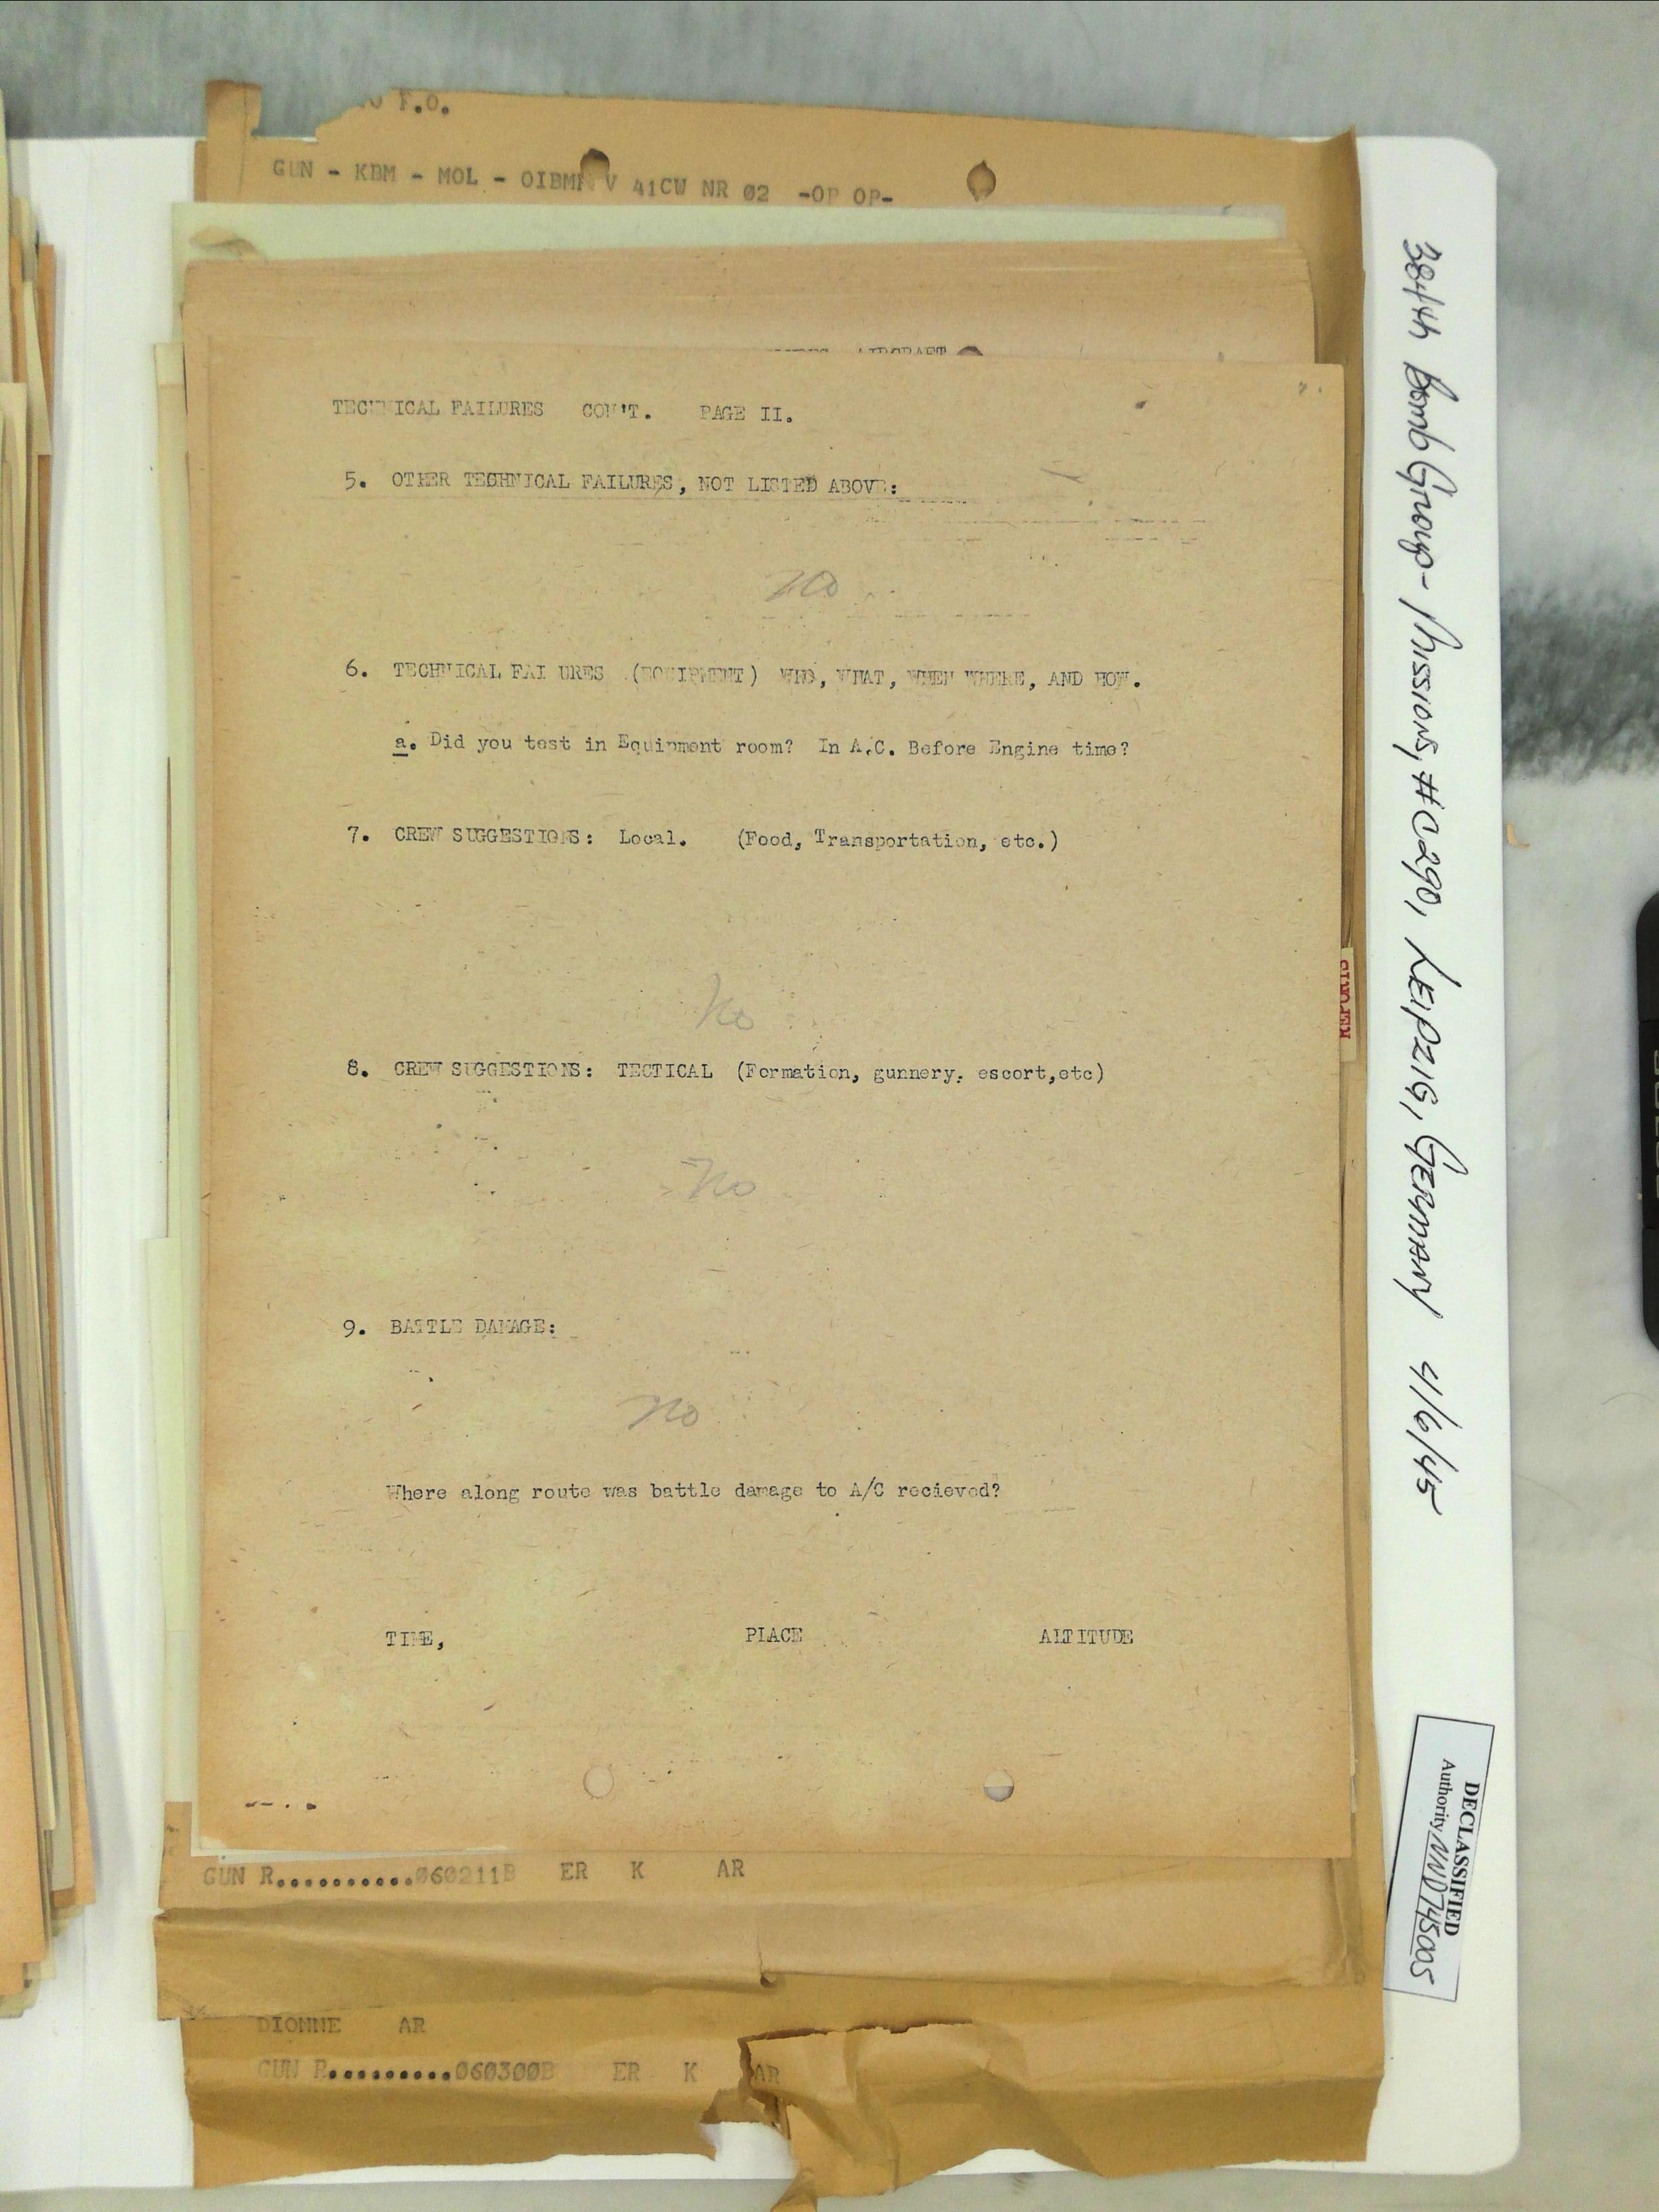 F.O.
GUN - KBM - MOL - OIBMF V 41CW NR 02 -OP OP-
AIRCRAFT
TECHNICAL FAILURES CON'T. PAGE II.
5. OTHER TECHNICAL FAILURES, NOT LISTED ABOVE:
no
6. TECHNICAL FAI URES (EQUIPMENT) WHO, WHAT, WHEN WHERE, AND HOW.
a. Did you test in Equipment room? In A.C. Before Engine time?
7. CREW SUGGESTIONS: Local. (Food, Transportation, etc.)
No
8. CREW SUGGESTIONS: TECTICAL (Formation, gunnery, escort,etc)
No
9. BATTLE DAMAGE:
no
Where along route was battle damage to A/C recieved?
TIME, PLACE ALTITUDE
GUN R..........060211B ER K AR
DIONNE AR
GUN R.........060300B ER K AR
REPORTS
384th Bomb Group - Missions, #C290, LEIPZIG, GERMANY 4/6/45
DECLASSIFIED
Authority NND745005